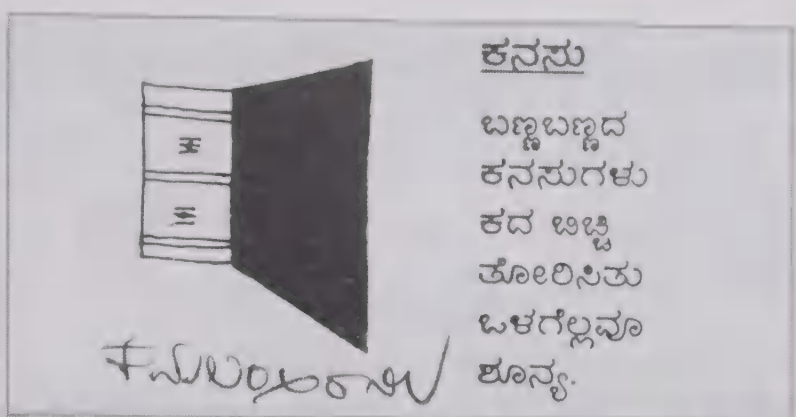 ಕನಸು
ಬಣ್ಣಬಣ್ಣದ
ಕನಸುಗಳು
ಕದ ಬಿಚ್ಚಿ
ತೋರಿಸಿತು
ಒಳಗೆಲ್ಲವೂ
ಶೂನ್ಯ.